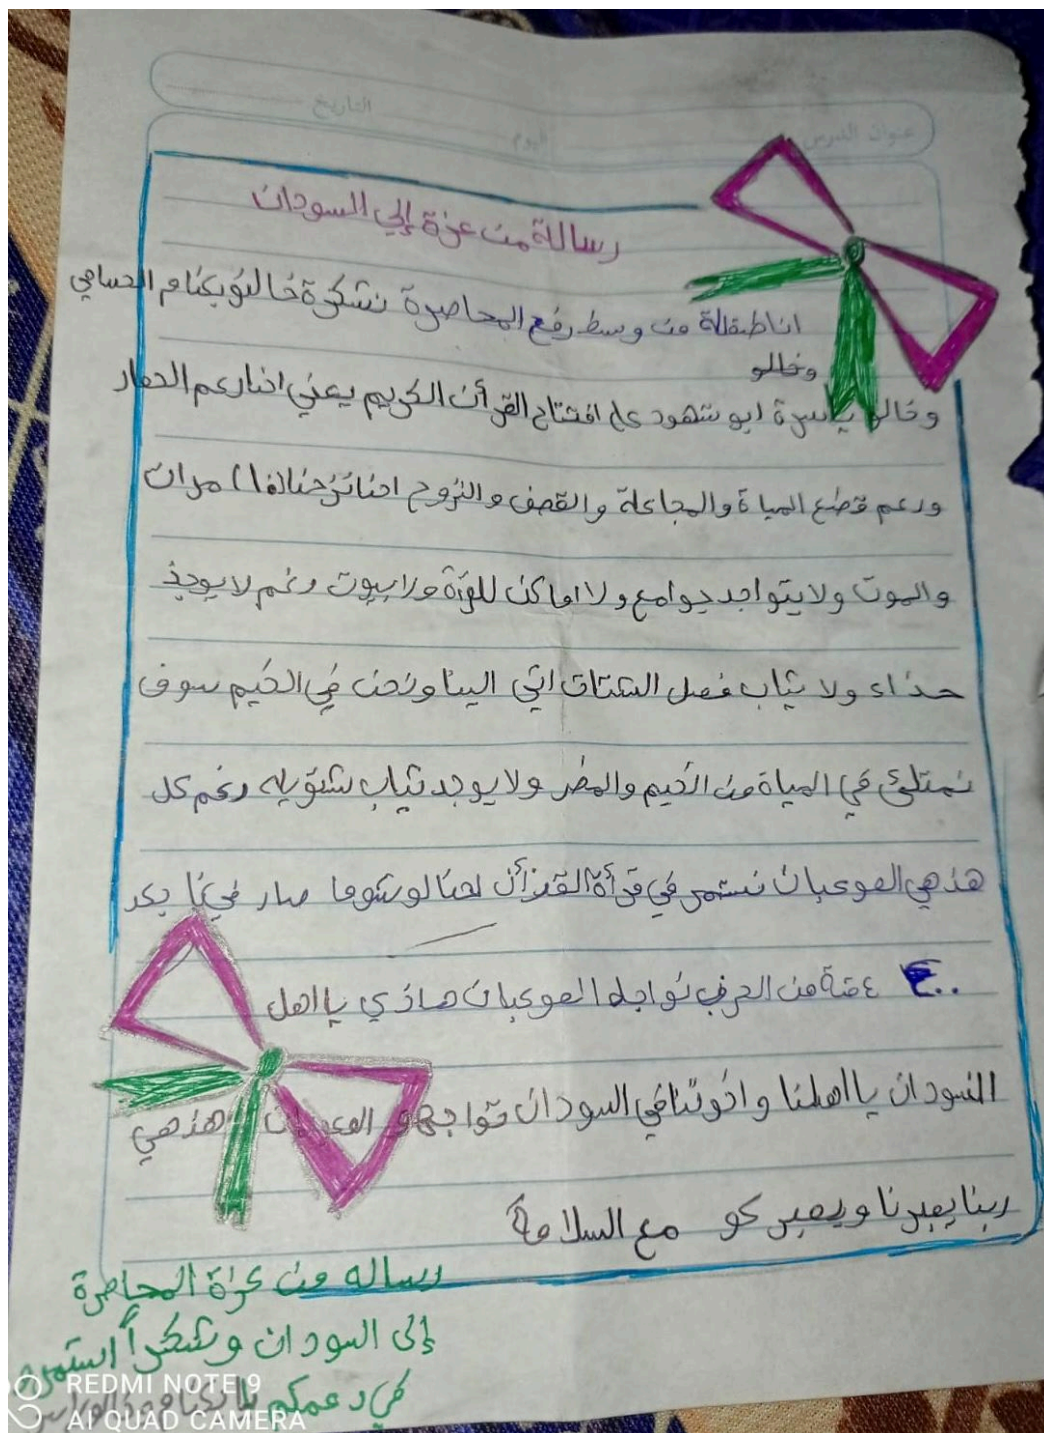 عنوان الدرس اليوم التاريخ
رسالة من غزة إلي السودان
انا طفلة من وسط رفح المحاصرة نشكرة خالتو الحسامي
وخالتو
وخالو ياسرة ابو شهود على افتتاح القرأن الكريم يعني احنا رغم الحصار
ورغم قطع المياة والمجاعة والقصف والنزوح احنا نزحنا مرات
والموت ولا يتواجد جوامع ولا اماكن للقرأة ولا بيوت رغم لا يوجد
حذاء ولا ثياب فصل الشتات اتي الينا ونحن في الخيم سوف
نمتلئ في المياة من الخيم والمطر ولا يوجد ثياب شتويه رغم كل
هذهي الصوعبات نستمر في قرأة القرأن احنا لو شوما صار فينا بعد
٤٠٠ من الحرب نواجه الصوعبات هاذي يا اهل
السودان يا اهلنا واخوتنا في السودان تواجهو هذهي
ربنا يصبرنا ويصبركو مع السلامة
رساله من غزة المحاصرة
إلى السودان وشكراً استمرو
في دعمكم
REDMI NOTE 9
AI QUAD CAMERA